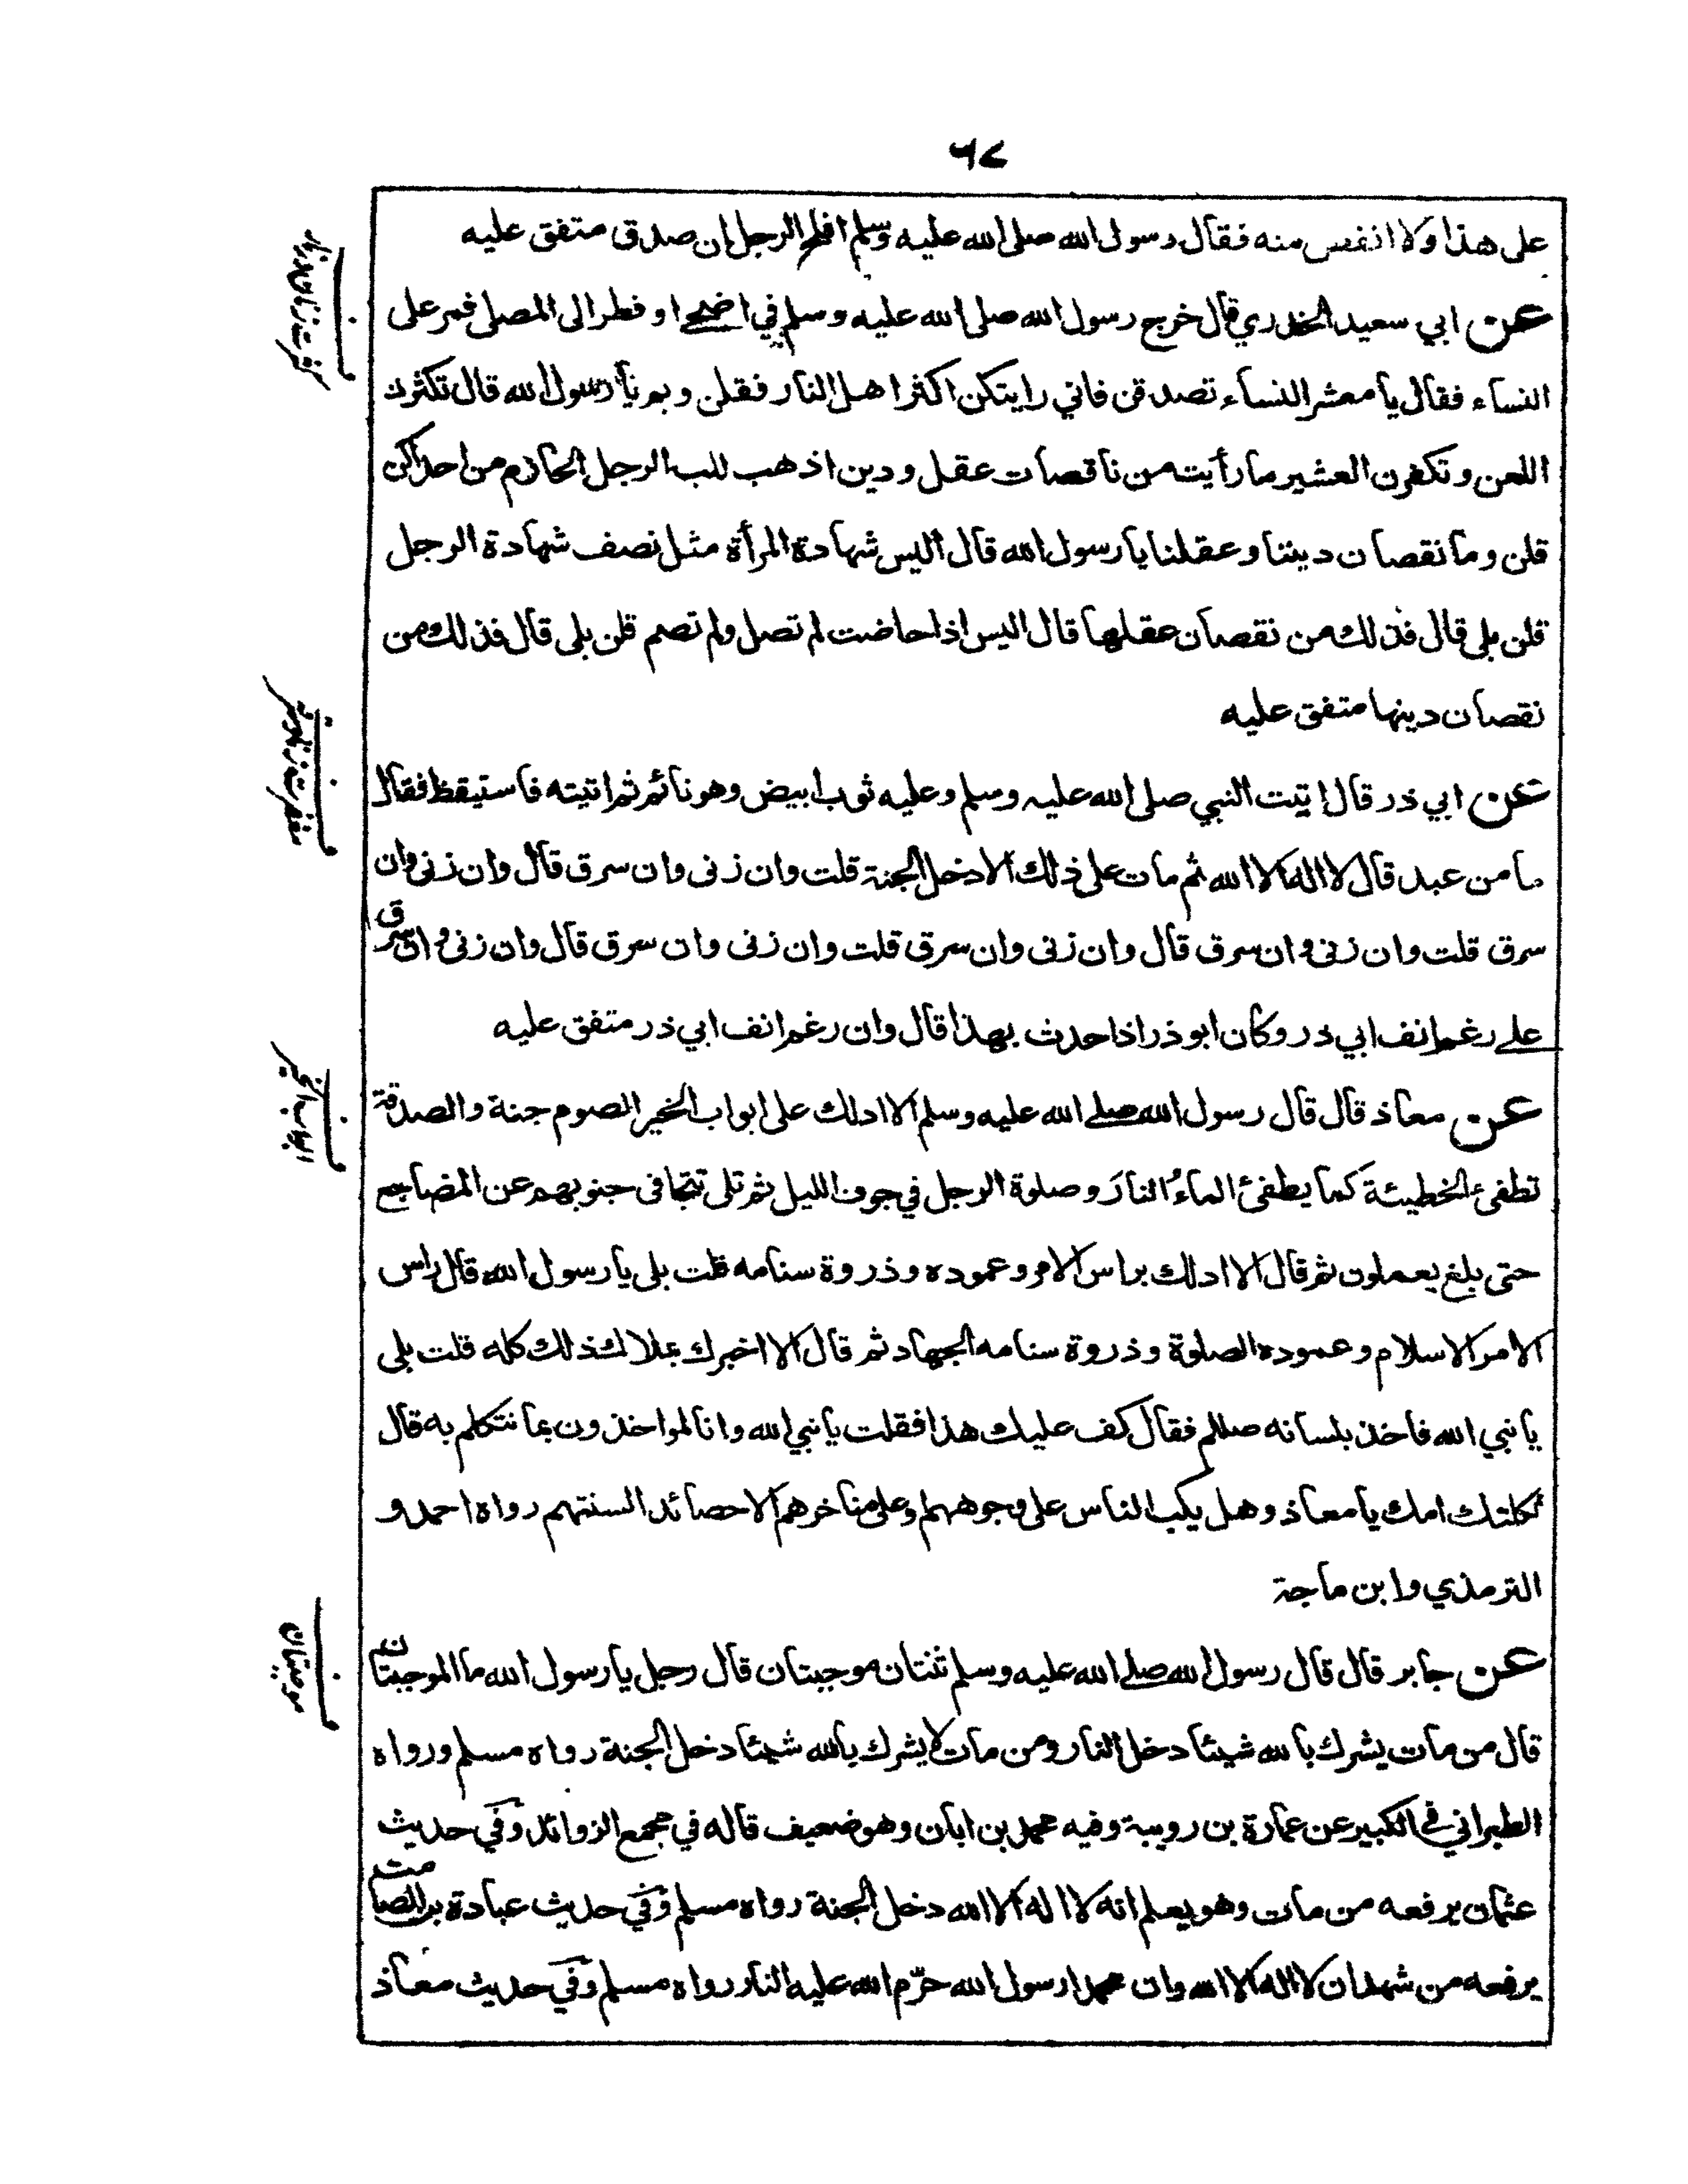 ٦٧
على هذا ولا انقص منه فقال رسول الله صلى الله عليه وسلم افلح الرجل ان صدق متفق عليه
عن ابي سعيد الخدري قال خرج رسول الله صلى الله عليه وسلم في اضحى او فطر الى المصلى فمر على
النساء فقال يا معشر النساء تصدقن فاني رايتكن اكثر اهل النار فقلن وبم يا رسول الله قال تكثرن
اللعن وتكفرن العشير ما رأيت من ناقصات عقل ودين اذهب للب الرجل الحازم من احداكن
قلن وما نقصان ديننا وعقلنا يا رسول الله قال أليس شهادة المرأة مثل نصف شهادة الرجل
قلن بلى قال فذلك من نقصان عقلها قال اليس اذا حاضت لم تصل ولم تصم قلن بلى قال فذلك من
نقصان دينها متفق عليه
عن ابي ذر قال اتيت النبي صلى الله عليه وسلم وعليه ثوب ابيض وهو نائم ثم اتيته فاستيقظ فقال
ما من عبد قال لا اله الا الله ثم مات على ذلك الا دخل الجنة قلت وان زنى وان سرق قال وان زنى وان
سرق قلت وان زنى وان سرق قال وان زنى وان سرق قلت وان زنى وان سرق قال وان زنى وان سرق
على رغم انف ابي ذر وكان ابو ذر اذا حدث بهذا قال وان رغم انف ابي ذر متفق عليه
عن معاذ قال قال رسول الله صلى الله عليه وسلم الا ادلك على ابواب الخير الصوم جنة والصدقة
تطفئ الخطيئة كما يطفئ الماءُ النارَ وصلوة الرجل في جوف الليل ثم تلى تتجافى جنوبهم عن المضاجع
حتى بلغ يعملون ثم قال الا ادلك براس الامر وعموده وذروة سنامه قلت بلى يا رسول الله قال راس
الامر الاسلام وعموده الصلوة وذروة سنامه الجهاد ثم قال الا اخبرك بملاك ذلك كله قلت بلى
يا نبي الله فاخذ بلسانه صللم فقال كف عليك هذا فقلت يا نبي الله وانا لمواخذون بما نتكلم به قال
ثكلتك امك يا معاذ وهل يكب الناس على وجوههم او على مناخرهم الا حصائد السنتهم رواه احمد و
الترمذي وابن ماجة
عن جابر قال قال رسول الله صلى الله عليه وسلم ثنتان موجبتان قال رجل يا رسول الله ما الموجبتان
قال من مات يشرك بالله شيئا دخل النار ومن مات لا يشرك بالله شيئا دخل الجنة رواه مسلم ورواه
الطبراني في الكبير عن عمارة بن رويبة وفيه محمد بن ابان وهو ضعيف قاله في مجمع الزوائد وفي حديث
عثمان يرفعه من مات وهو يعلم انه لا اله الا الله دخل الجنة رواه مسلم وفي حديث عبادة بن الصامت
يرفعه من شهد ان لا اله الا الله وان محمدا رسول الله حرّم الله عليه النار رواه مسلم وفي حديث معاذ
ابواب الخير
موجبتان